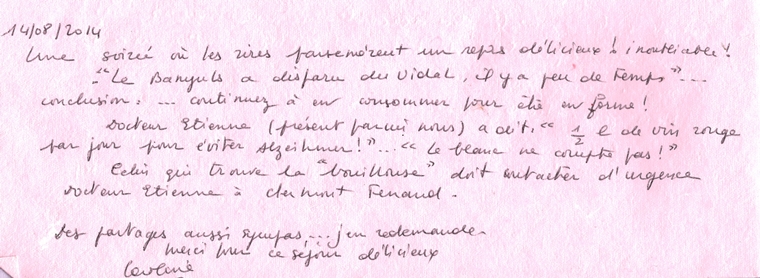 14/08/2014
Une soirée où les rires parsemèrent un repas délicieux ! inoubliable !
"Le Banyuls a disparu du Vidal, il y a peu de temps"...
conclusion : ... continuez à en consommer pour être en forme !
Docteur Etienne (présent parmi nous) a dit : " 1/2 l de vin rouge
par jour pour éviter alzeihmer !"... "Le blanc ne compte pas !"
Celui qui trouve la "bouillouse" doit contacter d'urgence
Docteur Etienne à Clermont Ferrand.
Des partages aussi sympas,... j'en redemande.
Merci pour ce séjour délicieux